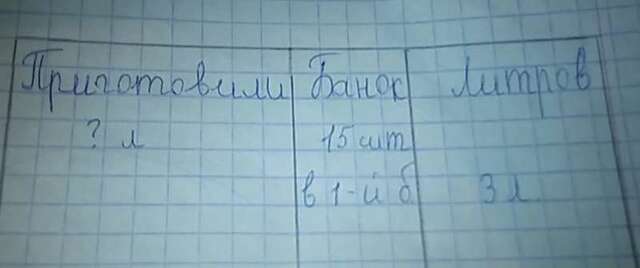 Приготовили Банок Литров
? л 15 шт
в 1-й б 3 л.